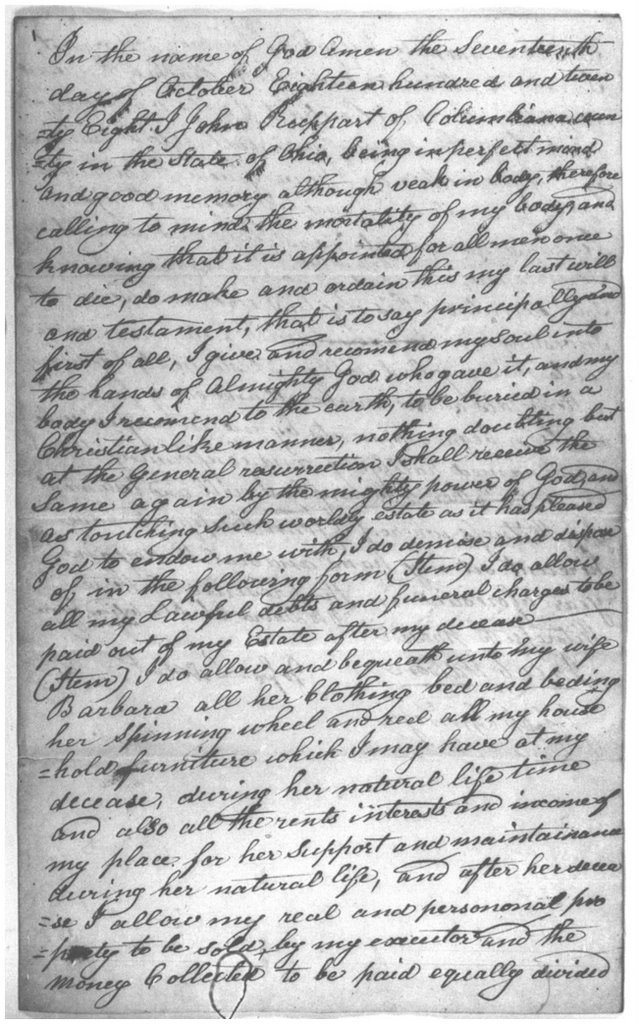 In the name of God Amen the Seventeenth
day of October Eighteen hundred and twen
=ty Eight I John Roppart of Columbiana coun
=ty in the State of Ohio, being in perfect mind
and good memory although weak in body, therefore
calling to mind the mortality of my body, and
knowing that it is appointed for all men once
to die, do make and ordain this my last will
and testament, that is to say principally and
first of all, I give and recomend my soul into
the hands of Almighty God who gave it, and my
body I recomend to the earth, to be buried in a
Christianlike manner, nothing doubting but
at the General resurrection I shall receive the
same again by the mighty power of God, and
as touching such worldly estate as it has pleased
God to endow me with, I do demise and dispose
of, in the following form (Item) I do allow
all my Lawful debts and funeral charges to be
paid out of my Estate after my decease
(Item) I do allow and bequeath unto my wife
Barbara all her Clothing bed and beding
her spinning wheel and reel all my house
=hold furniture which I may have at my
decease, during her natural life time
and also all the rents interests and income of
my place for her support and maintainance
during her natural life, and after her decea
=se I allow my real and persononal pro
=perty to be sold, by my executor and the
money Collected to be paid equally divided